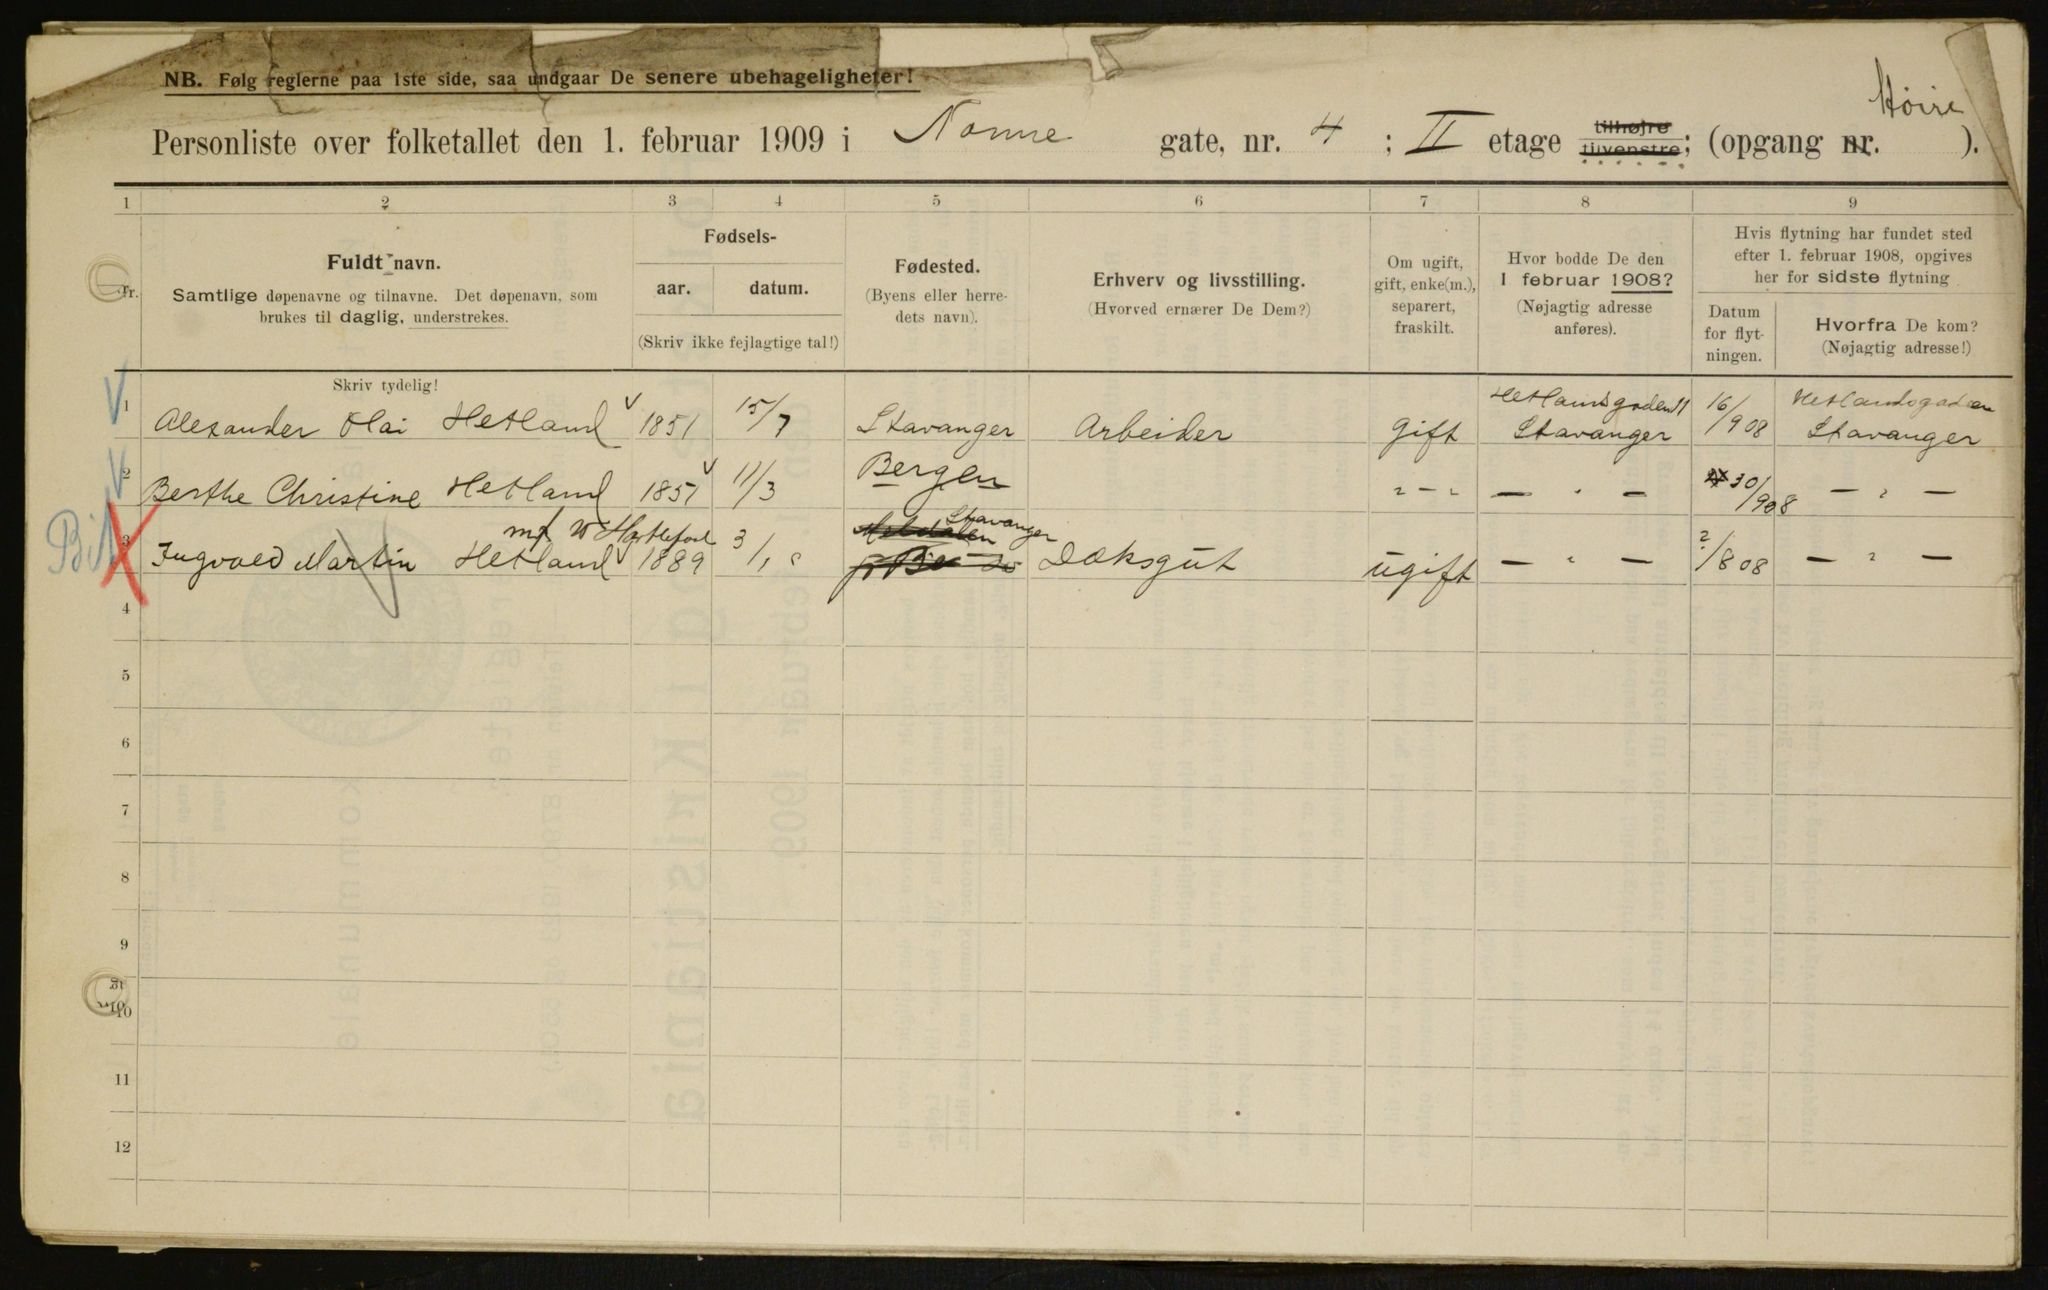 NB. Følg reglerne paa 1ste side, saa undgaar De senere ubehageligheter!
Personliste over folketallet den 1. februar 1909 i Nonne gate, nr. 4 ; II etage tilhøjre tilvenstre; (opgang nr. Höire ).
1 2 3 4 5 6 7 8 9
Nr.
Fuldt navn.
Samtlige døpenavne og tilnavne. Det døpenavn, som
brukes til daglig, understrekes.
Fødsels-
aar. datum.
(Skriv ikke fejlagtige tal!)
Fødested.
(Byens eller herre-
dets navn).
Erhverv og livsstilling.
(Hvorved ernærer De Dem?)
Om ugift,
gift, enke(m.),
separert,
fraskilt.
Hvor bodde De den
1 februar 1908?
(Nøjagtig adresse
anføres).
Hvis flytning har fundet sted
efter 1. februar 1908, opgives
her for sidste flytning
Datum
for flyt-
ningen.
Hvorfra De kom?
(Nøjagtig adresse!)
Skriv tydelig!
1 Alexander Olai Hetland 1851 15/7 Stavanger Arbeider gift Hetlandsgaden 11 Stavanger 16/908 Hetlandsgaden Stavanger
2 Berthe Christine Hetland 1851 11/3 Bergen " - " — " — 30/908 — " —
3 Ingvald Martin Hetland 1889 3/1 Stavanger Dæksgut ugift — " — ?/8 08 — " —
4
5
6
7
8
9
10
11
12